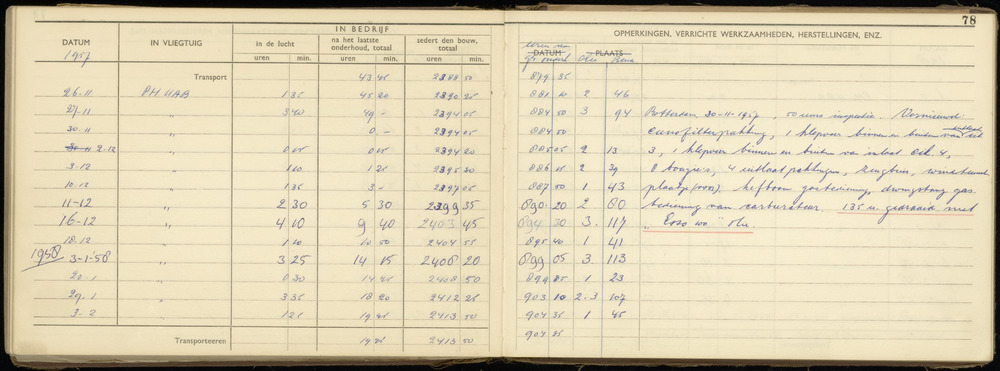 78
IN BEDRIJF
DATUM
IN VLIEGTUIG
in de lucht
na het laatste onderhoud, totaal
sedert den bouw, totaal
uren min. uren min. uren min.
1957
OPMERKINGEN, VERRICHTE WERKZAAMHEDEN, HERSTELLINGEN, ENZ.
DATUM PLAATS
Olie
Transport 43 45 2388 50 879 35
26-11 PH UAB 1 35 45 20 2390 25 881 10 2 46
27-11 " 3 40 49 - 2394 05 884 50 3 94 Rotterdam, 30-11-1957, 50 uurs inspectie. Vernieuwd:
30-11 " 0 - 2394 05 884 50 1 klepveer binnen en buiten van
2-12 " 0 15 0 15 2394 20 885 05 2 13 3, 1 klepveer binnen en buiten van inlaat cil. 4,
3-12 " 1 10 1 25 2395 30 886 15 2 39 8 bougies, 4 uitlaatpakkingen,
10-12 " 1 35 3 - 2397 05 887 50 1 43 hefboom gasbediening, gas
11-12 " 2 30 5 30 2399 35 890 20 2 80 bediening van carburateur. 135 u. gedraaid met
16-12 " 4 10 9 40 2403 45 894 30 3 117 "Esso 100" olie.
18-12 " 1 10 10 50 2404 55 895 40 1 41
1958 3-1-'58 " 3 25 14 15 2408 20 899 05 3 113
20-1 " 0 30 14 45 2408 50 899 35 1 23
29-1 " 3 35 18 20 2412 25 903 10 2.3 107
3-2 " 1 25 19 45 2413 50 904 35 1 45
Transporteeren 19 45 2413 50 904 35